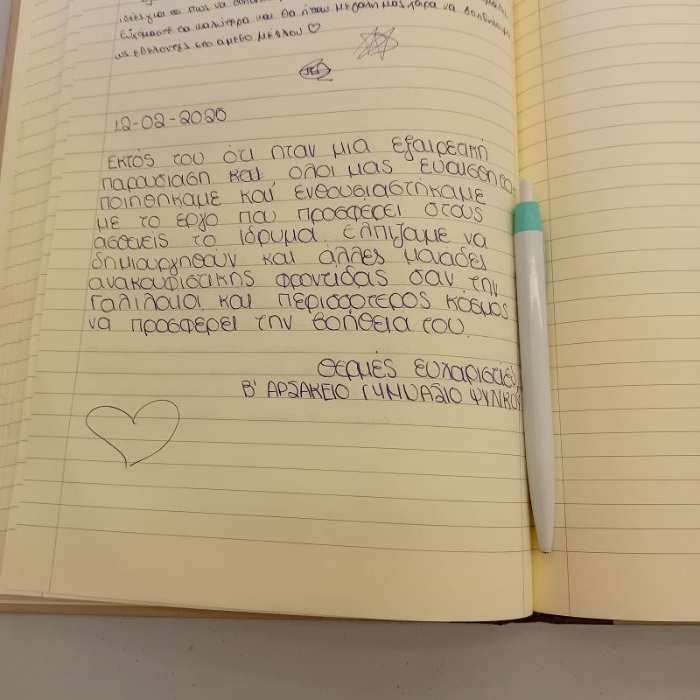 ιδέες για το πως να βοηθ
Ευχόμαστε τα καλύτερα και θα ήταν μεγάλη μας χαρά να βοηθήσουμε
ως εθελοντές στο άμεσο μέλλον ♡
12-02-2020
Εκτός του ότι ήταν μια εξαιρεατή
παρουσίαση και όλοι μας ευαισθητο-
ποιηθήκαμε και ενθουσιαστήκαμε
με το έργο που προσφέρει στους
ασθενείς το ίδρυμα ελπίζαμε να
δημιουργηθούν και άλλες μονάδες
ανακουφιστικής φροντίδας σαν την
Γαλιλαία και περισσότερος κόσμος
να προσφέρει την βοήθεια του.
Θερμές ευχαριστίες
Β' ΑΡΣΑΚΕΙΟ ΓΥΜΝΑΣΙΟ ΨΥΧΙΚΟΥ